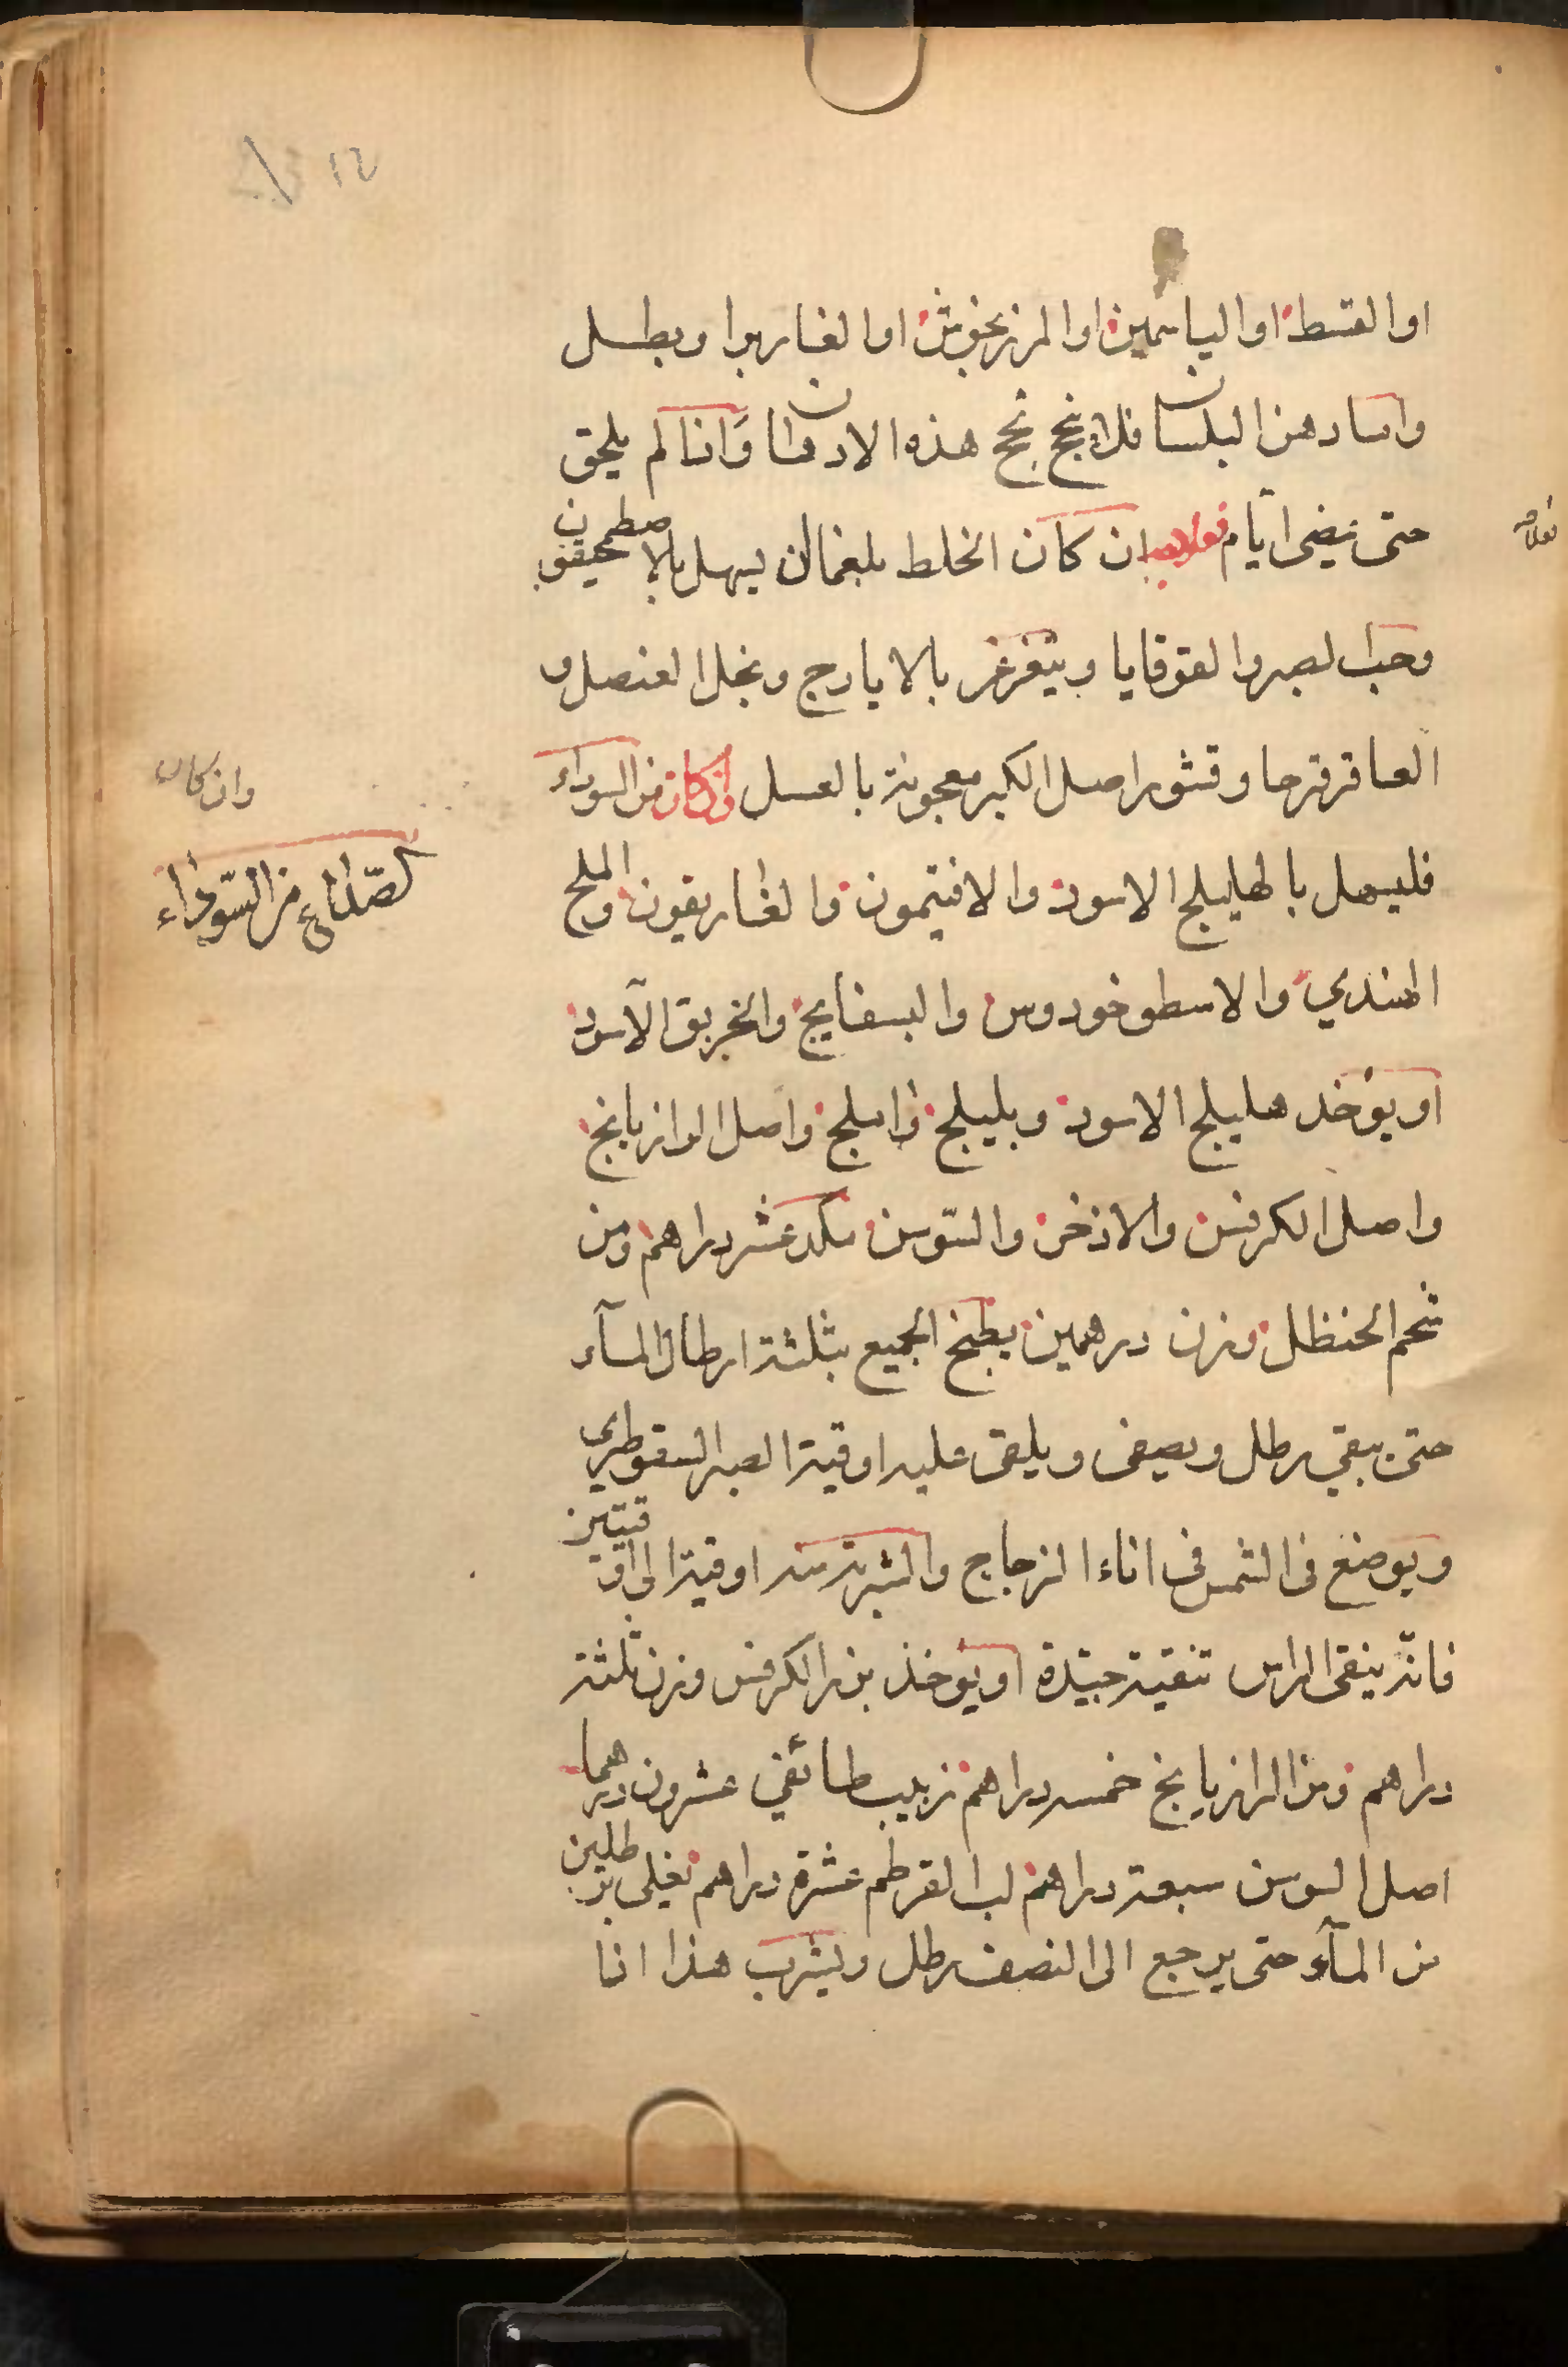 ١٤
او القسط او الياسمين او المرزنجوش او الغار مرا وبطل
واما دهن البلسان فلا ينجح نجح هذه الادهان وانا لم يلحق
حتى تمضى ايام ان كان الخلط بلغما ان يسهل بالاصطمحيقون
وحب الصبر والقوقايا ويتغرغر بالايارج وبخل العنصل و
العاقرقرحا وقشور اصل الكبر معجونة بالعسل وان كان من السوداء
فليسهل بالهليلج الاسود والافتيمون والغاريقون والملح
الهندي والاسطوخودوس والبسفايج والخربق الاسود
او يوخد هليلج الاسود وبليلج واملج واصل الرازيانج
واصل الكرفس والاذخر والسوسن مكد عشر دراهم ومن
شحم الحنظل وزن درهمين يطبخ الجميع بثلثة ارطال المآء
حتى يبقي رطل ويصفى ويلقى عليه اوقية الصبر السقوطرى
ويوضع فى الشمس فى اناء الزجاج والشربة منه اوقية الى اوقيتين
فانه ينقى الراس تنقية جيدة او يوخذ بزر الكرفس وزن ثلثة
دراهم ومن الرازيانج خمسه دراهم زبيب طائفي عشرون درهما
اصل السوسن سبعة دراهم لب القرطم عشرة دراهم تغلى برطلين
من المآء حتى يرجع الى النصف رطل ويشرب هذا انا
وان كان
الصداع من السوداء